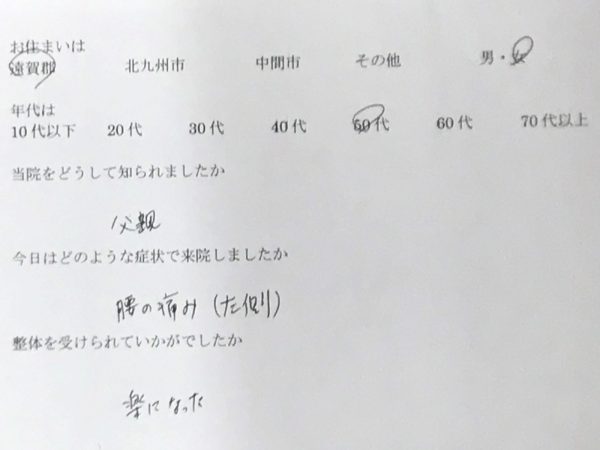 お住まいは
遠賀郡 北九州市 中間市 その他 男・女
年代は
10代以下 20代 30代 40代 50代 60代 70代以上
当院をどうして知られましたか
父親
今日はどのような症状で来院しましたか
腰の痛み（左側）
整体を受けられていかがでしたか
楽になった